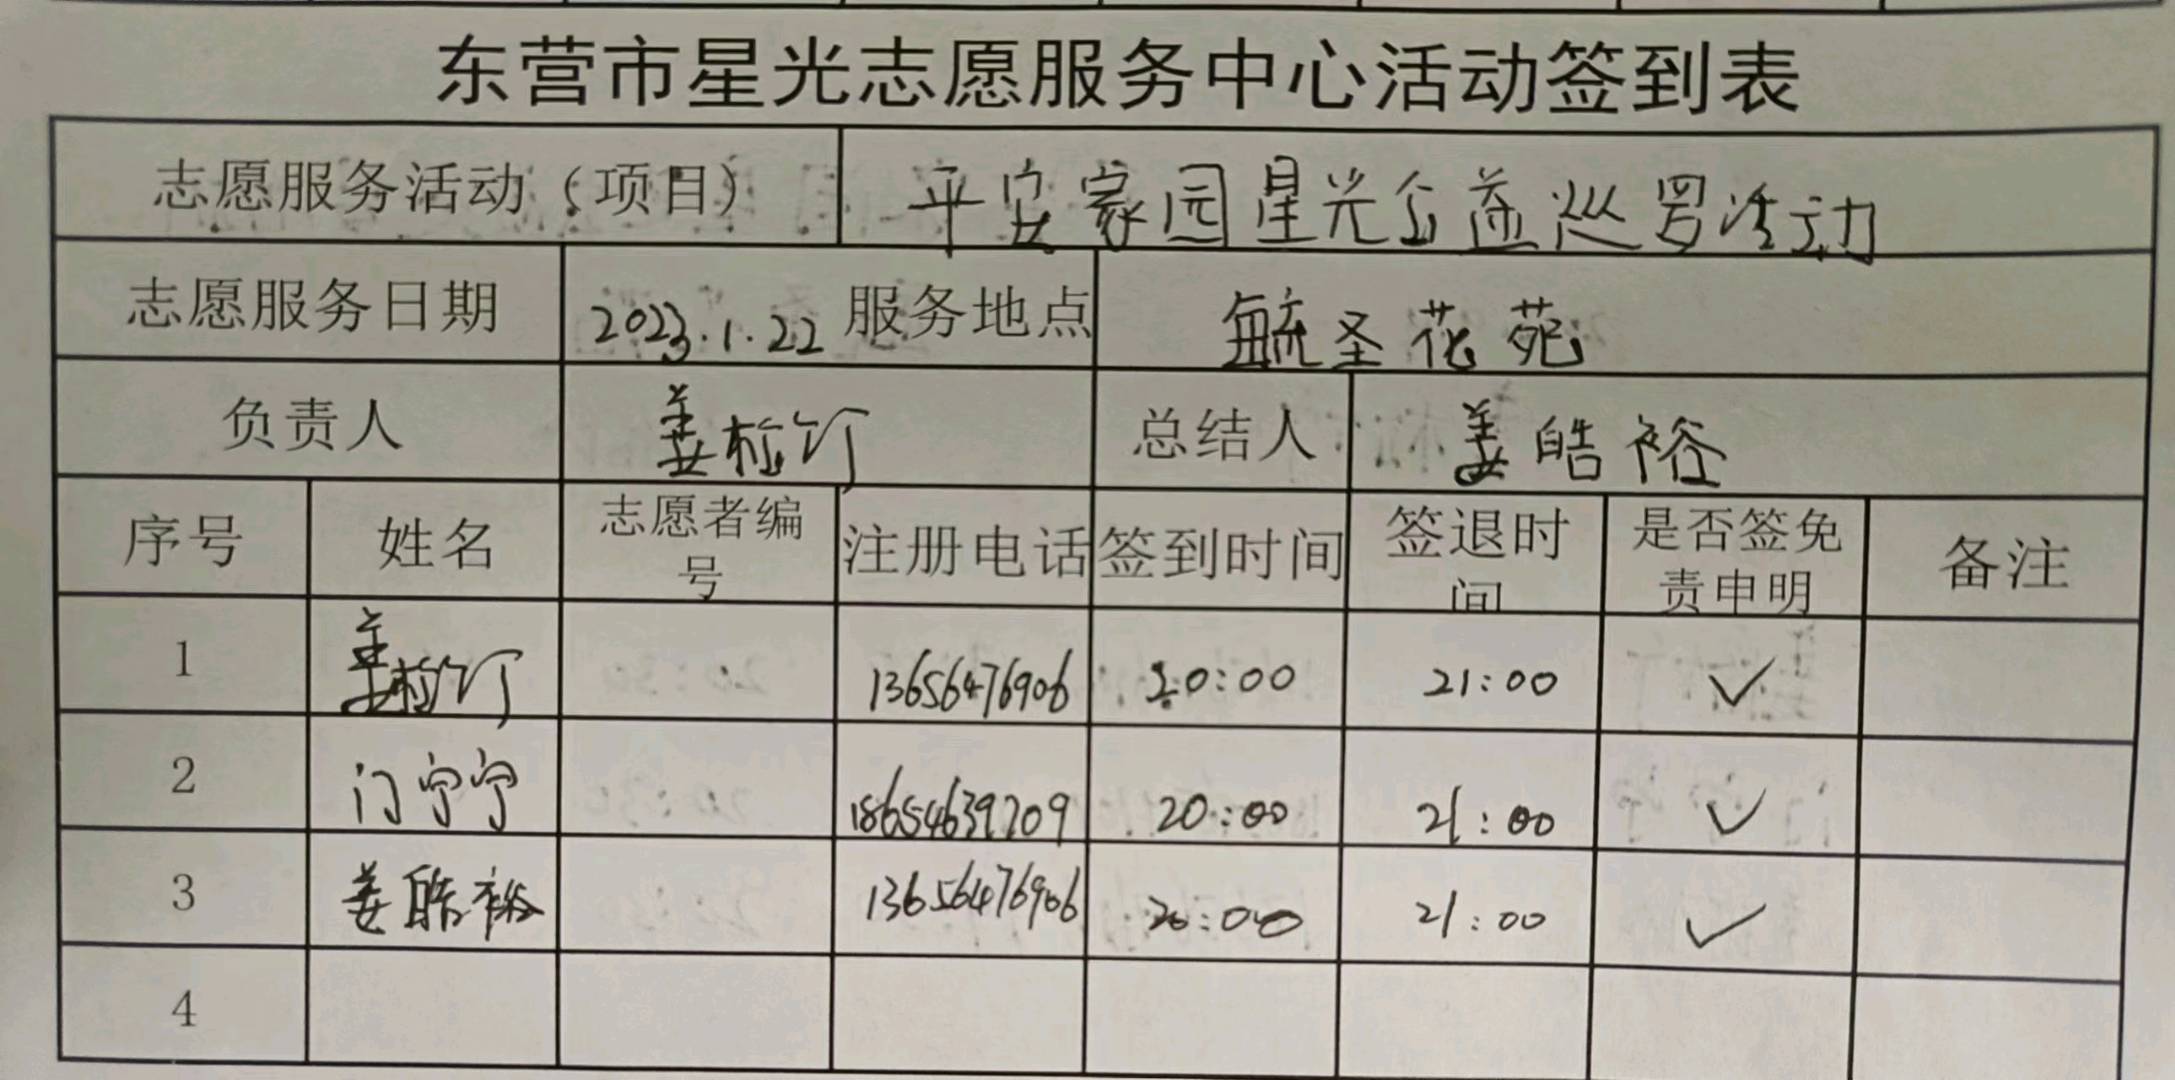 东营市星光志愿服务中心活动签到表
志愿服务活动（项目） 平安家园星光公益巡罗活动
志愿服务日期 2023.1.22 服务地点 毓圣花苑
负责人 姜松订 总结人 姜皓裕
序号 姓名 志愿者编号 注册电话 签到时间 签退时间 是否签免责申明 备注
1 姜松订 13656476906 20:00 21:00 ✓
2 门宁宁 18654639209 20:00 21:00 ✓
3 姜皓裕 13656476906 20:00 21:00 ✓
4